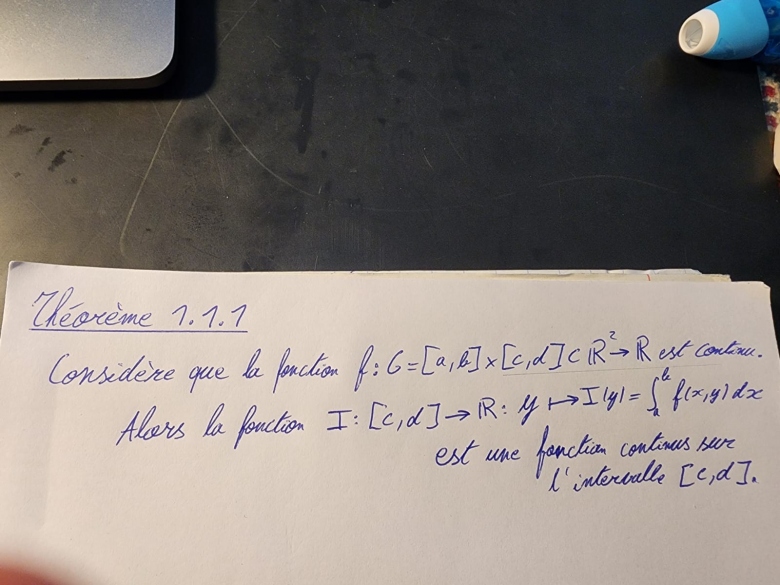 Théorème 1.1.1
Considère que la fonction f: G = [a,b] × [c,d] ⊂ ℝ² → ℝ est continu.
Alors la fonction I: [c,d] → ℝ: y ↦ I(y) = ∫ₐᵇ f(x,y) dx
est une fonction continus sur
l'intervalle [c,d].